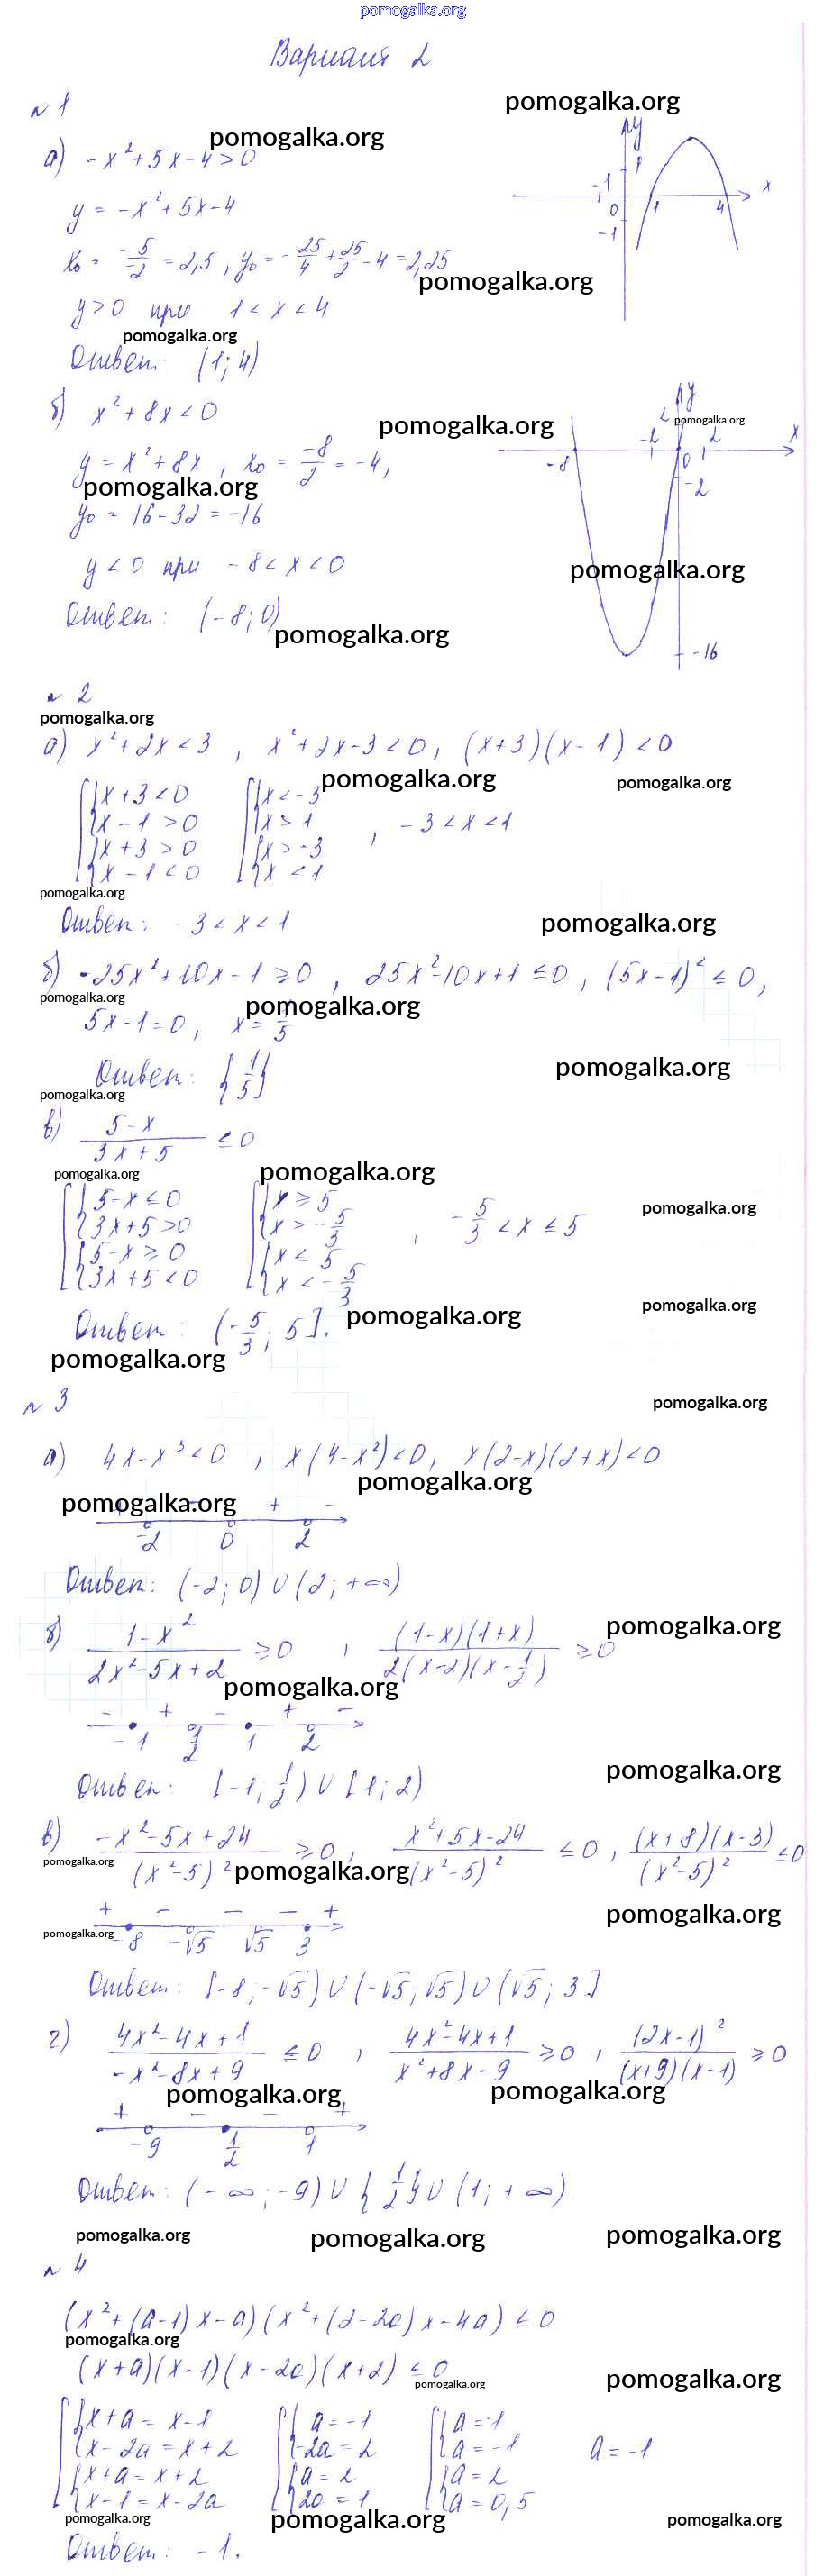 pomogalka.org
Вариант 2
№ 1
pomogalka.org
pomogalka.org
а) -x² + 5x - 4 > 0
y = -x² + 5x - 4
x₀ = -5/-2 = 2,5, y₀ = -25/4 + 25/2 - 4 = 2,25
y
1
-1
0
1
4
x
-1
pomogalka.org
y > 0 при 1 < x < 4
pomogalka.org
Ответ: (1; 4)
б) x² + 8x < 0
pomogalka.org
pomogalka.org
y = x² + 8x, x₀ = -8/2 = -4,
pomogalka.org
y₀ = 16 - 32 = -16
y
2
-2
2
x
-8
0
-2
-16
y < 0 при -8 < x < 0
pomogalka.org
Ответ: (-8; 0)
pomogalka.org
№ 2
pomogalka.org
а) x² + 2x < 3, x² + 2x - 3 < 0, (x+3)(x-1) < 0
pomogalka.org
pomogalka.org
x + 3 < 0 x < -3
x - 1 > 0 x > 1
x + 3 > 0 x > -3 , -3 < x < 1
x - 1 < 0 x < 1
pomogalka.org
Ответ: -3 < x < 1
pomogalka.org
б) -25x² + 10x - 1 ≥ 0, 25x² - 10x + 1 ≤ 0, (5x-1)² ≤ 0,
pomogalka.org
pomogalka.org
5x - 1 = 0, x = 1/5
pomogalka.org
Ответ: {1/5}
pomogalka.org
в) (5-x)/(3x+5) ≤ 0
pomogalka.org
pomogalka.org
5 - x ≤ 0 x ≥ 5
3x + 5 > 0 x > -5/3
5 - x ≥ 0 x ≤ 5 , -5/3 < x ≤ 5
3x + 5 < 0 x < -5/3
pomogalka.org
pomogalka.org
Ответ: (-5/3; 5].
pomogalka.org
pomogalka.org
№ 3
pomogalka.org
а) 4x - x³ < 0, x(4 - x²) < 0, x(2-x)(2+x) < 0
pomogalka.org
pomogalka.org
+ - + -
-2 0 2
Ответ: (-2; 0) ∪ (2; +∞)
pomogalka.org
б) (1-x²)/(2x²-5x+2) ≥ 0, (1-x)(1+x)/(2(x-2)(x-1/2)) ≥ 0
pomogalka.org
- + - + -
-1 1/2 1 2
pomogalka.org
Ответ: [-1; 1/2) ∪ [1; 2)
в) (-x²-5x+24)/(x²-5)² ≥ 0, (x²+5x-24)/(x²-5)² ≤ 0, (x+8)(x-3)/(x²-5)² ≤ 0
pomogalka.org
pomogalka.org
+ - - - +
pomogalka.org
pomogalka.org
-8 -√5 √5 3
Ответ: [-8; -√5) ∪ (-√5; √5) ∪ (√5; 3]
г) (4x²-4x+1)/(-x²-8x+9) ≤ 0, (4x²-4x+1)/(x²+8x-9) ≥ 0, (2x-1)²/((x+9)(x-1)) ≥ 0
pomogalka.org
pomogalka.org
+ - - +
-9 1/2 1
Ответ: (-∞; -9) ∪ {1/2} ∪ (1; +∞)
pomogalka.org
pomogalka.org
pomogalka.org
№ 4
(x² + (a-1)x - a)(x² + (2-2a)x - 4a) ≤ 0
pomogalka.org
(x+a)(x-1)(x-2a)(x+2) ≤ 0
pomogalka.org
pomogalka.org
x + a = x - 1 a = -1 a = -1
x - 2a = x + 2 -2a = 2 a = -1 a = -1
x + a = x + 2 a = 2 a = 2
x - 1 = x - 2a 2a = 1 a = 0,5
pomogalka.org
pomogalka.org
pomogalka.org
Ответ: -1.